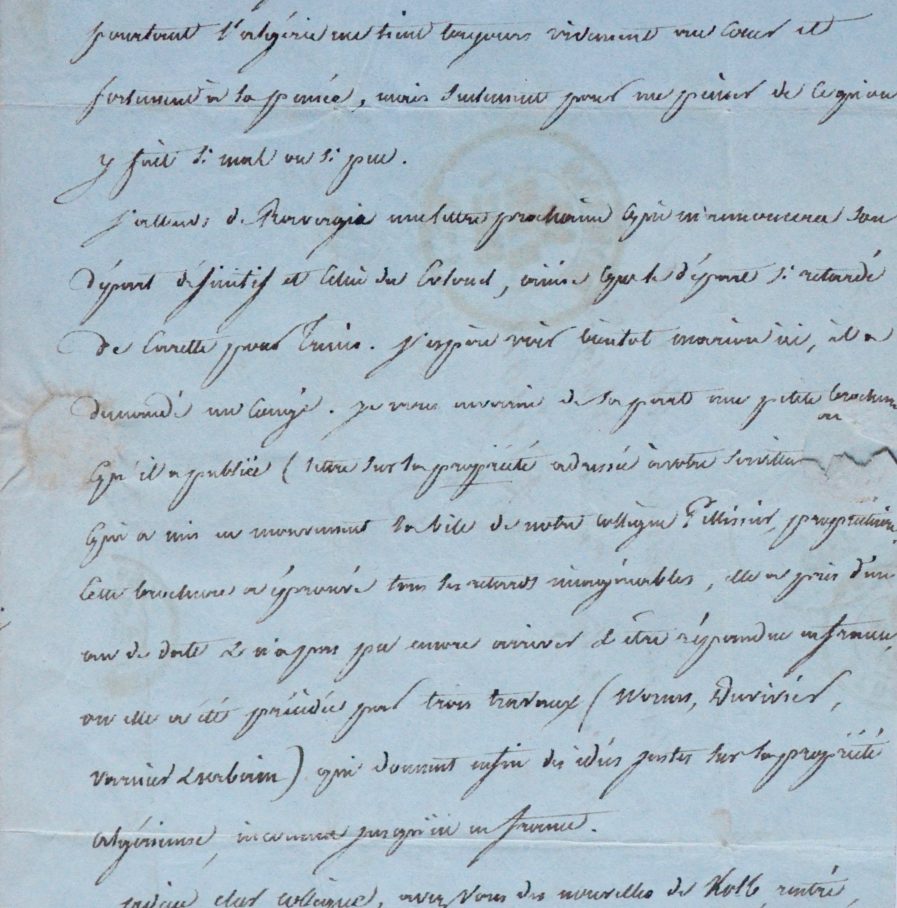 pourtant l'algérie me tient toujours vivement au cœur et
fortement à la pensée, mais seulement pour me peiner de ce qu'on
y fait si mal ou si peu.
J'attends de Ravergie une lettre prochaine qui m'annoncera son
départ définitif et celui du Colonel, ainsi que le départ si retardé
de Carette pour Tunis. J'espère voir bientot marion ici, il a
demandé un congé. je vous envoie de sa part une petite brochure
qu'il a publiée (lettre sur la propriété adressée à votre serviteur
qui a mis en mouvement la bile de notre collègue Pellissier, propriétaire.
Cette brochure a éprouvé tous les retards imaginables, elle a près d'un
an de date & n'a pas pu encore arriver à être répandue en france,
où elle a été précédée par trois travaux (Worms, Duvivier,
Warnier & urbain) qui donnent enfin des idées justes sur la propriété
algérienne, inconnue jusqu'ici en france.
cher collègue, avez vous des nouvelles de Kolb, rentré,